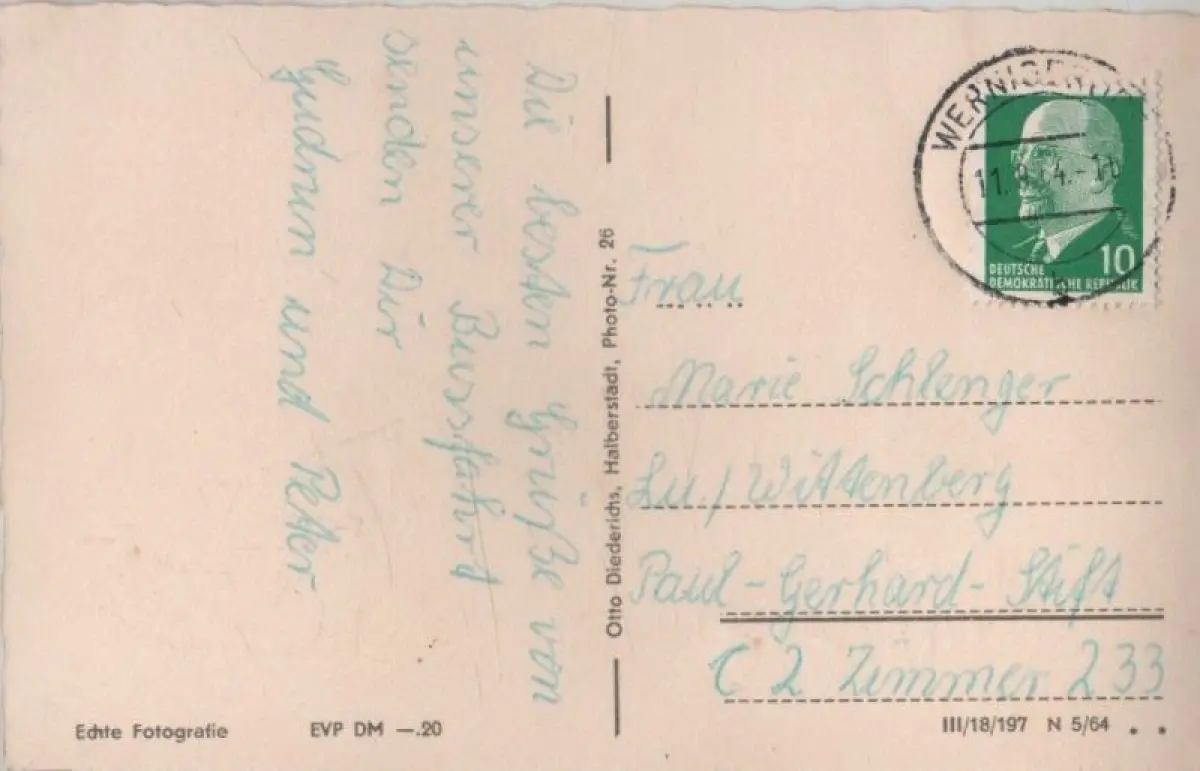 Die besten Grüße von
unserer Busfahrt
senden Dir
Gudrun und Peter
Otto Diederichs, Halberstadt, Photo-Nr. 26
WERNIGERODE
10
DEUTSCHE
DEMOKRATISCHE REPUBLIK
b
Frau
Marie Schlenger
Lu./Wittenberg
Paul-Gerhard-Stift
C 2 Zimmer 233
Echte Fotografie
EVP DM —.20
III/18/197 N 5/64